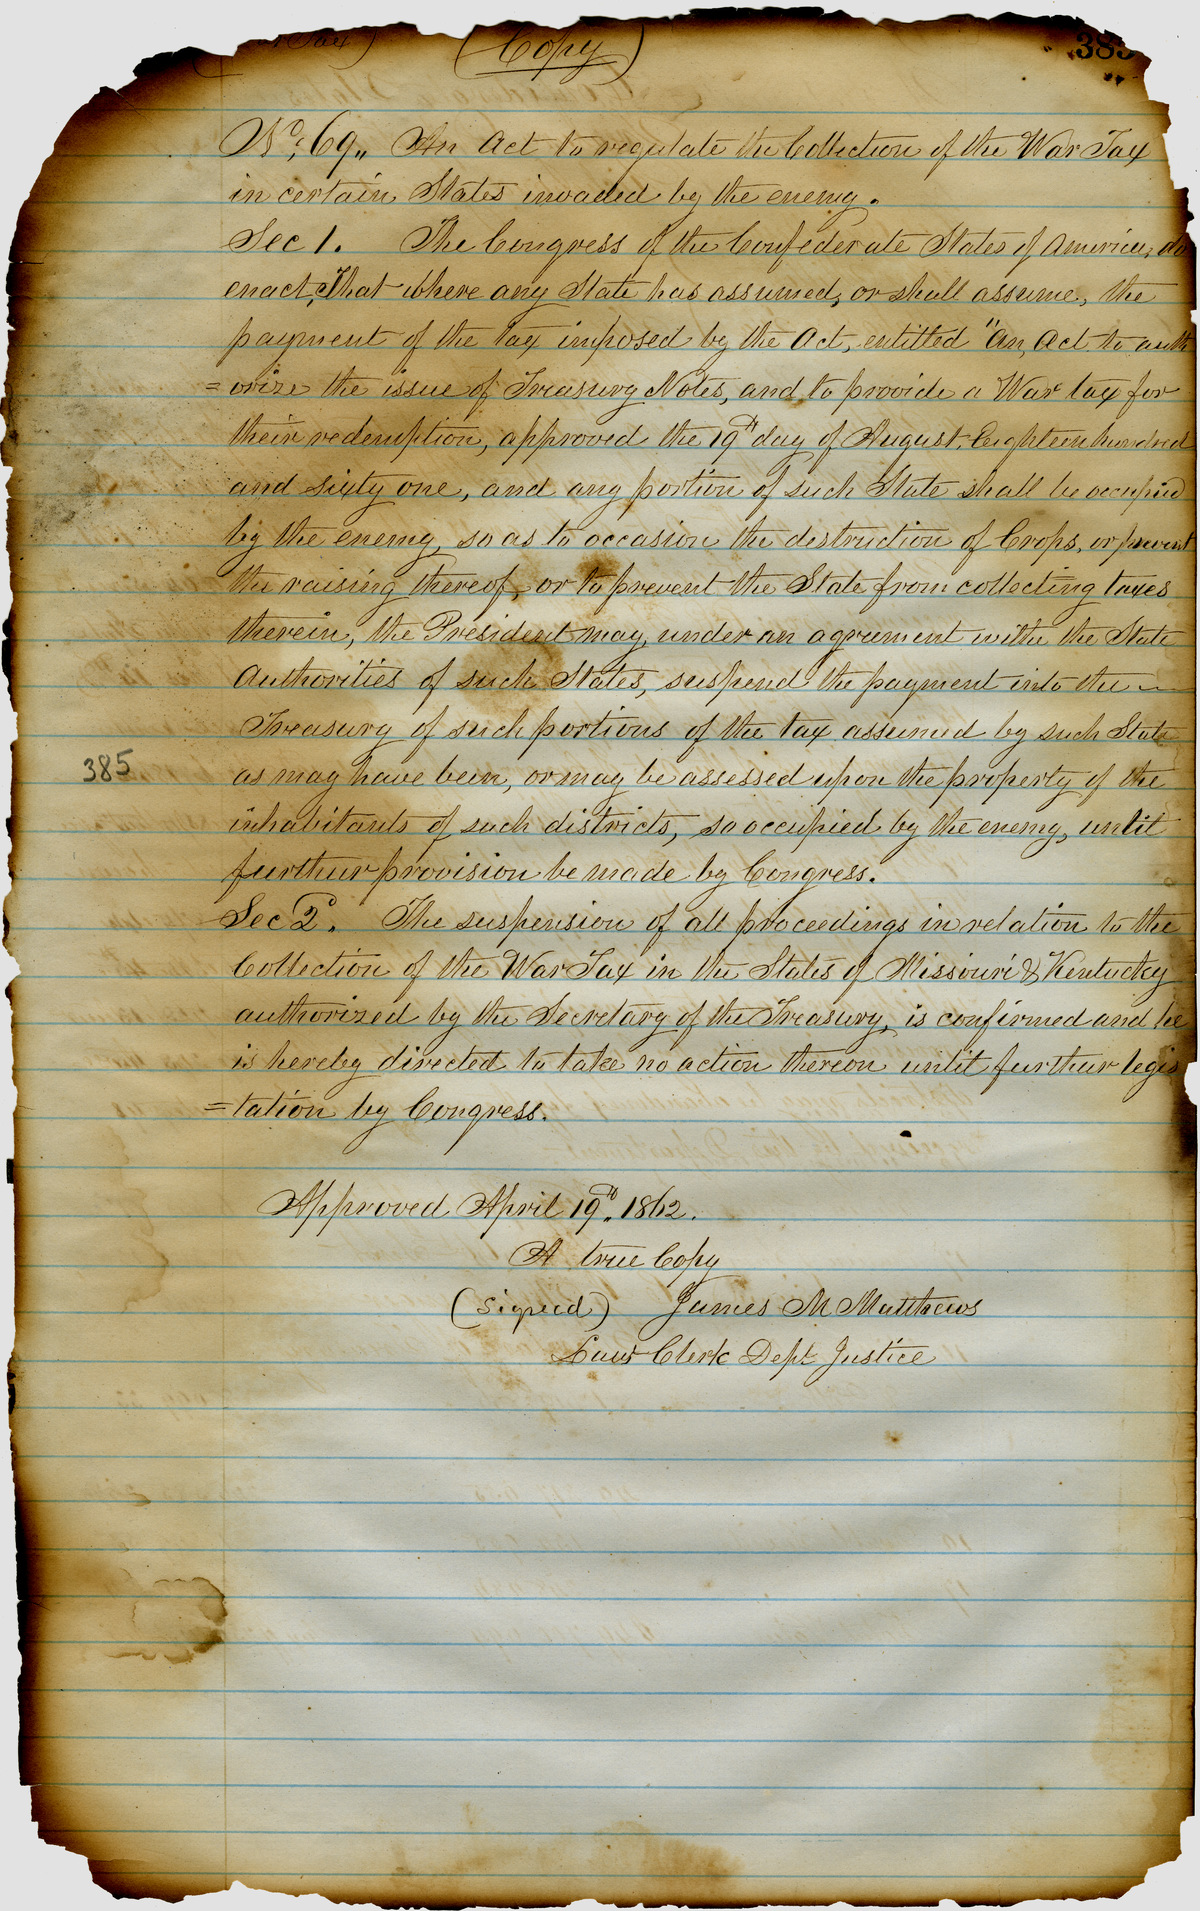 Tax) (Copy) 385
No. 69,, An Act to regulate the Collection of the War Tax
in certain States invaded by the enemy.
Sec 1. The Congress of the Confederate States of America, do
enact, That where any State has assumed, or shall assume, the
payment of the tax imposed by the Act, entitled "An, Act to auth
=orize the issue of Treasury Notes, and to provide a War tax for
their redemption, approved the 19th day of August, Eighteen hundred
and sixty one, and any portion of such State shall be occupied
by the enemy, so as to occasion the destruction of Crops, or prevent
the raising thereof, or to prevent the State from collecting taxes
therein, the President may, under an agreement with the State
Authorities of such States, suspend the payment into the
Treasury of such portions of the tax assumed by such State
385
as may have been, or may be assessed upon the property of the
inhabitants of such districts, so occupied by the enemy, until
further provision be made by Congress.
Sec 2d. The suspension of all proceedings in relation to the
Collection of the War Tax in the States of Missouri & Kentucky
authorized by the Secretary of the Treasury, is confirmed and he
is hereby directed to take no action thereon until further legis
=lation by Congress.
Approved April 19th. 1862.
A true Copy
(Signed) James M Matthews
Law Clerk Dept Justice